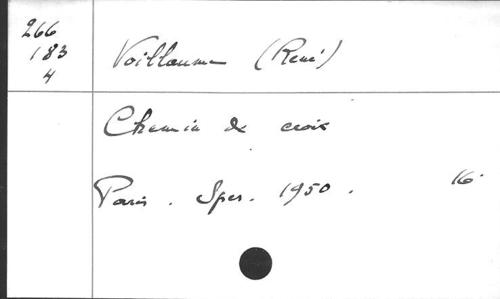 266
183
4
Voillaume (René)
Chemin de croix
Paris. Spes. 1950.
16.